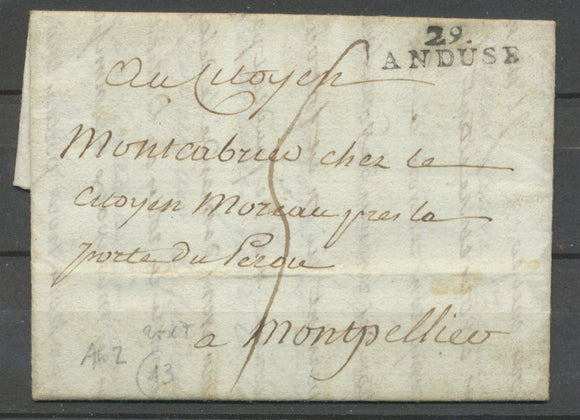 29.
ANDUSE
Au Citoyen
Montcabrie chez le
Citoyen Moreau pres la
porte du Perou
5
a Montpellier
Ah 2
13